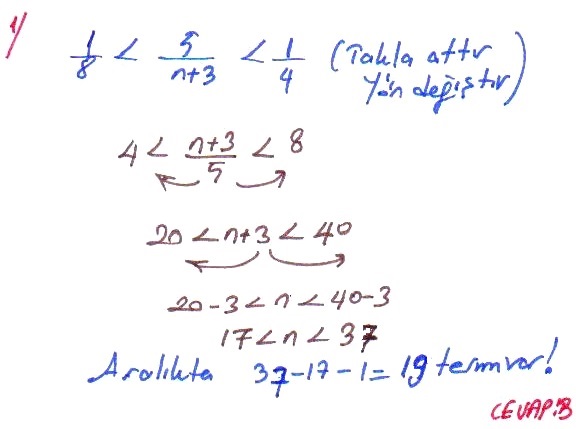 1/
1/8 < 5/n+3 < 1/4 (Takla attır
Yön değiştir)
4 < n+3/5 < 8
20 < n+3 < 40
20-3 < n < 40-3
17 < n < 37
Aralıkta 37-17-1 = 19 terim var!
CEVAP:B